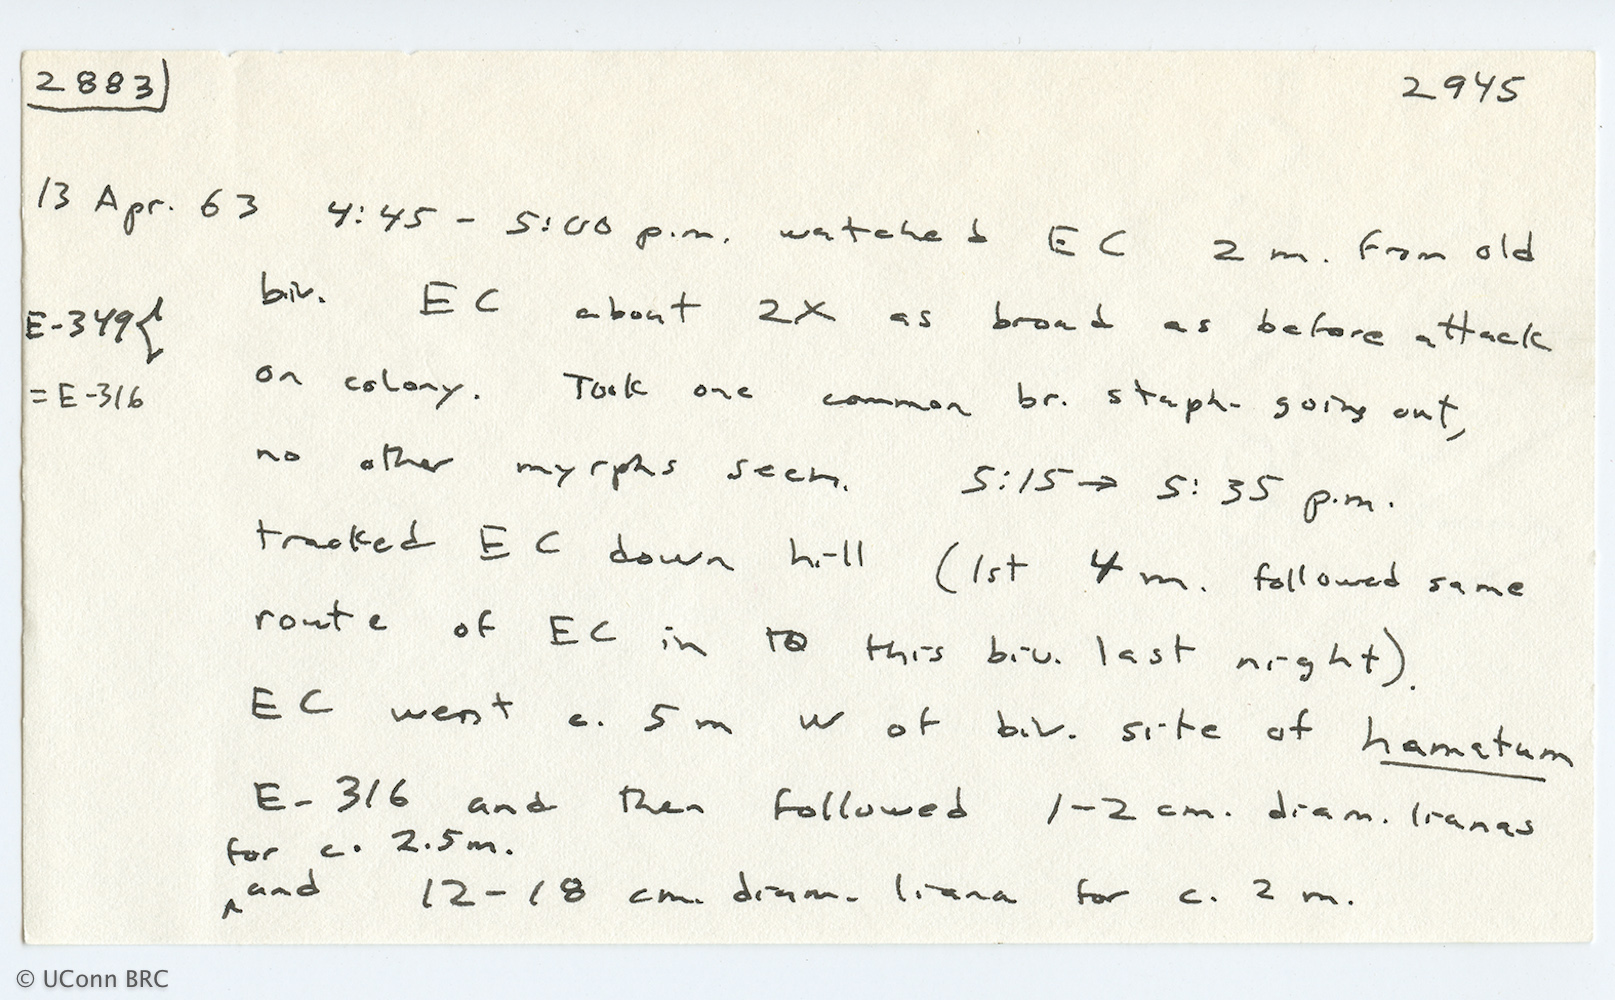 2883 2945
13 Apr. 63 4:45 - 5:00 p.m. watched EC 2 m. from old
biv. EC about 2X as broad as before attack
E-349{
on colony. Took one common br. staph- going out,
= E-316
no other myrphs seen. 5:15 → 5:35 p.m.
tracked EC down hill (1st 4 m. followed same
route of EC in to this biv. last night).
EC went c. 5 m W of biv. site of hamatum
E-316 and then followed 1-2 cm. diam. lianas
for c. 2.5 m.
^and 12-18 cm. diam. liana for c. 2 m.
© UConn BRC